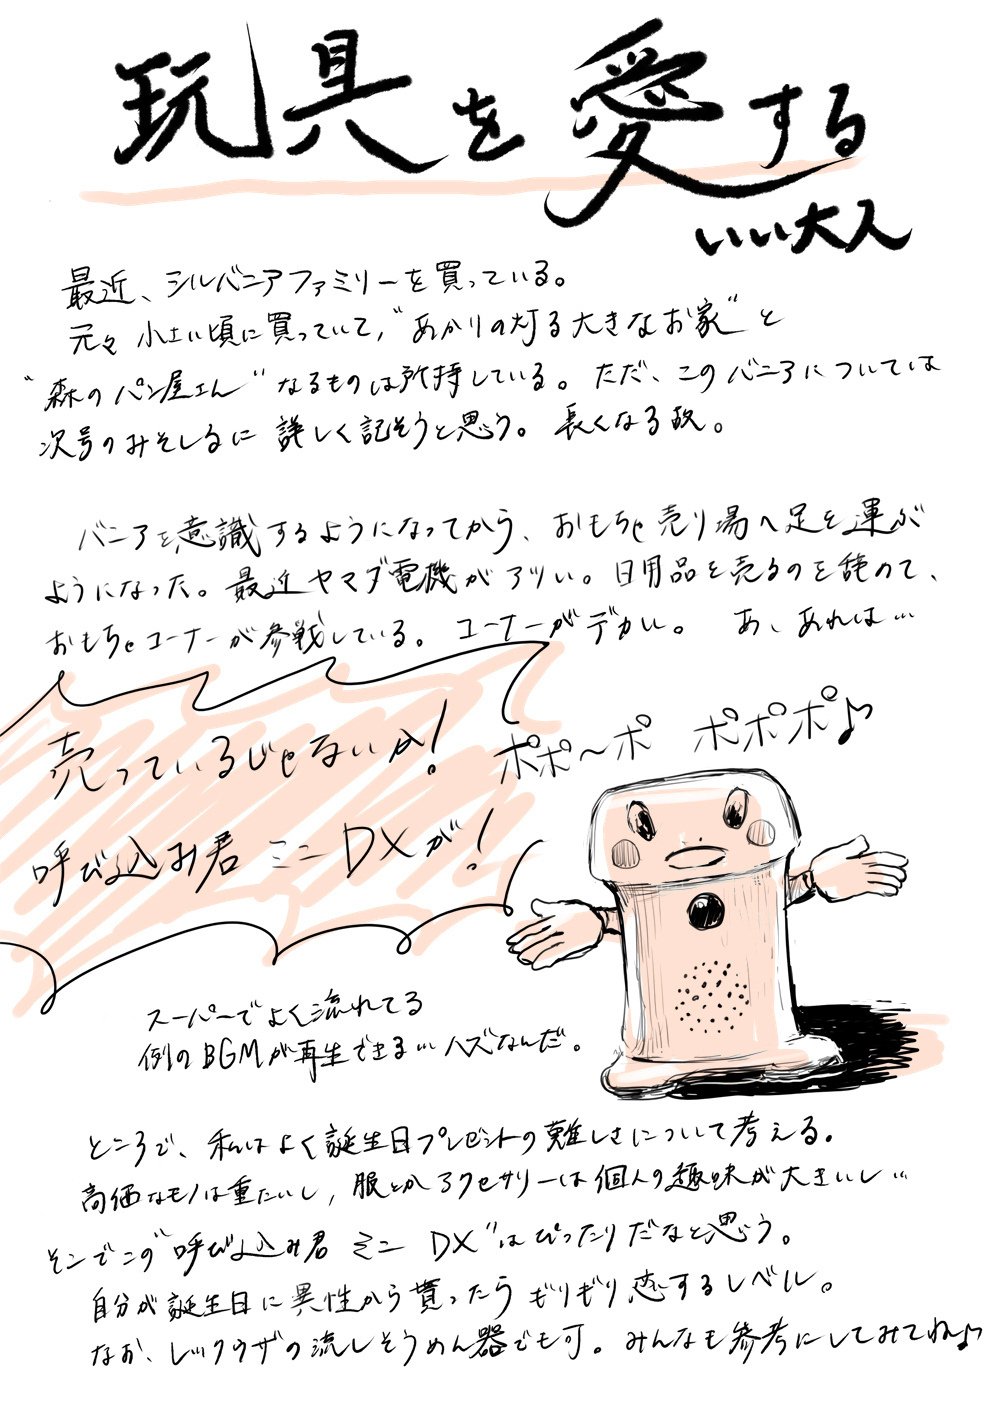 玩具を愛する
いい大人
最近、シルバニアファミリーを買っている。
元々小さい頃に買っていて、"あかりの灯る大きなお家"と
"森のパン屋さん"なるものは所持している。ただ、このバニアについては
次号のみそしるに詳しく記そうと思う。長くなる故。
バニアを意識するようになってから、おもちゃ売り場へ足を運ぶ
ようになった。最近ヤマダ電機がアツい。日用品を売るのを辞めて、
おもちゃコーナーが参戦している。コーナーがデカい。あ、あれは…
売っているじゃないか！
呼び込み君ミニDXが！
ポポ～ポ ポポポ♪
スーパーでよく流れてる
例のBGMが再生できる…ハズなんだ。
ところで、私はよく誕生日プレゼントの難しさについて考える。
高価なモノは重たいし、服とかアクセサリーは個人の趣味が大きいし…
そこでこの"呼び込み君 ミニ DX"はぴったりだなと思う。
自分が誕生日に異性から貰ったらギリギリ恋するレベル。
なお、レックウザの流しそうめん器でも可。みんなも参考にしてみてね♪